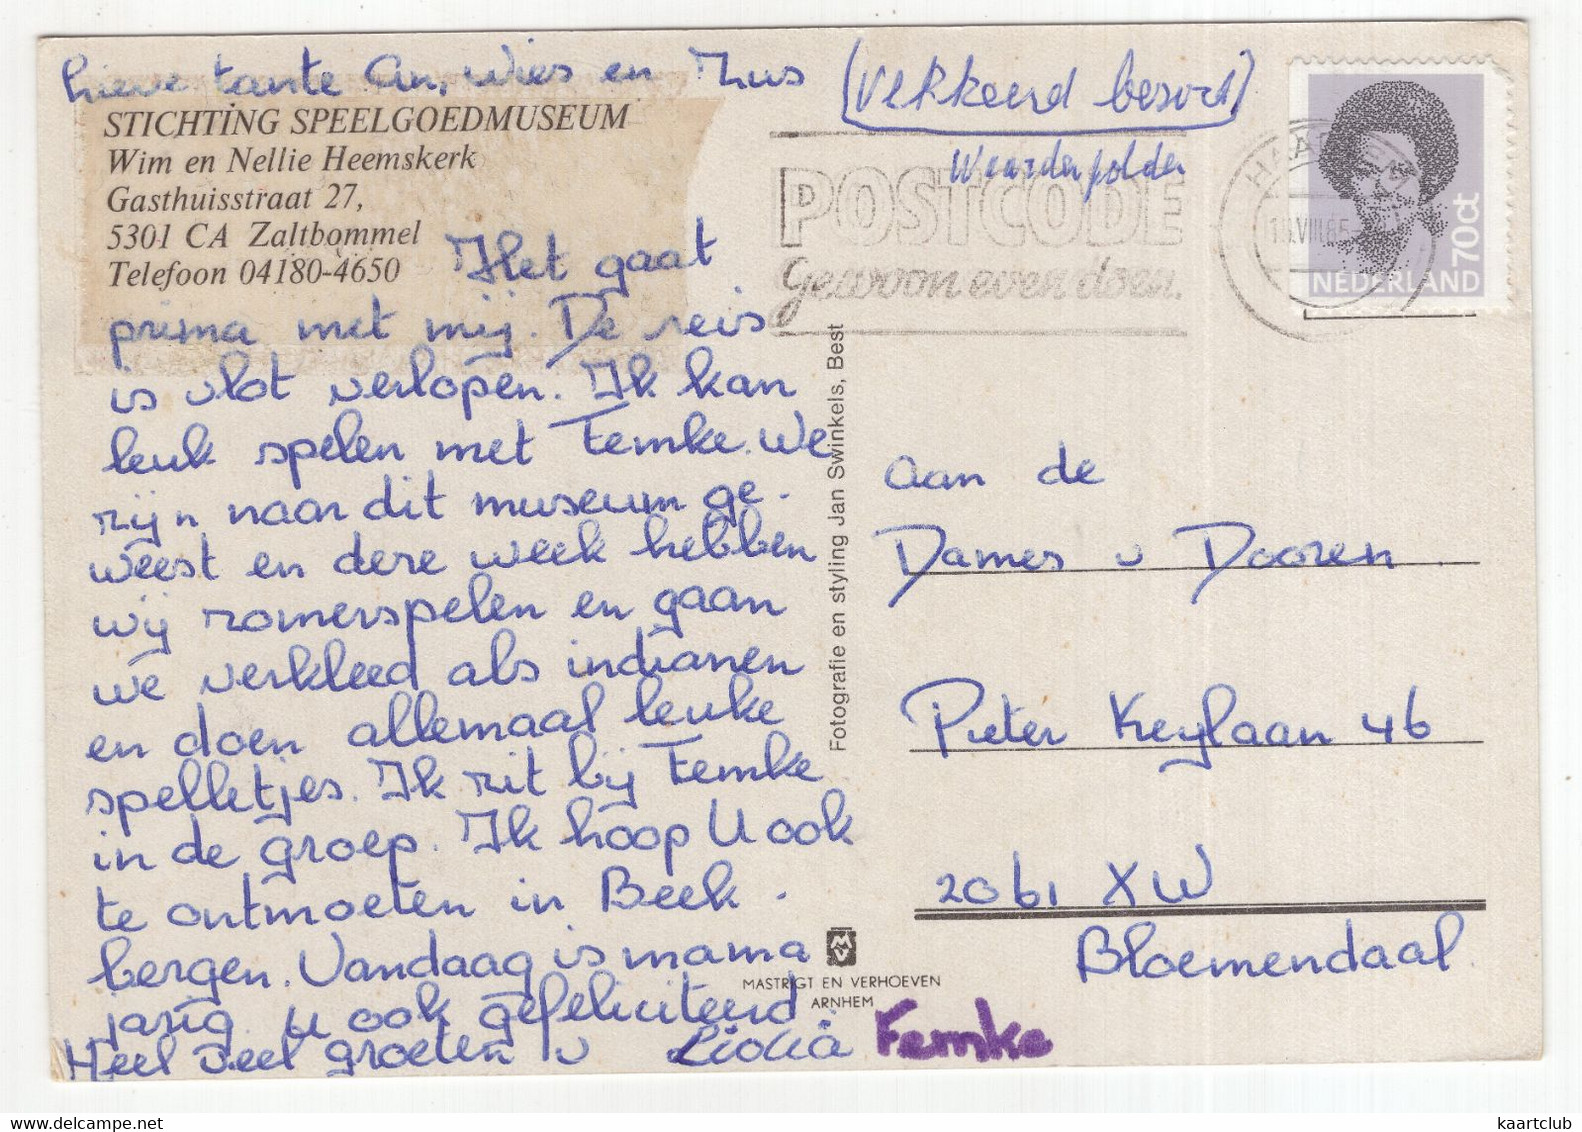 lieve tante An, Wies en Zus
(verkeerd besort)
Waarderpolder
STICHTING SPEELGOEDMUSEUM
Wim en Nellie Heemskerk
Gasthuisstraat 27,
5301 CA Zaltbommel
Telefoon 04180-4650
POSTCODE
Gewoon even doen.
HAARLEM
VIII.85
70ct
NEDERLAND
Het gaat
prima met mij. De reis
is vlot verlopen. Ik kan
leuk spelen met Femke. We
zijn naar dit museum ge-
weest en deze week hebben
wij zomerspelen en gaan
we verkleed als indianen
en doen allemaal leuke
spelletjes. Ik zit bij Femke
in de groep. Ik hoop U ook
te ontmoeten in Beek-
bergen. Vandaag is mama
jarig u ook gefeliciteerd
Heel veel groeten v Femke
Fotografie en styling Jan Swinkels, Best
MV
MASTRIGT EN VERHOEVEN
ARNHEM
aan de
Dames v Dooren
Pieter Keylaan 46
2061 XW
Bloemendaal
kaartclub